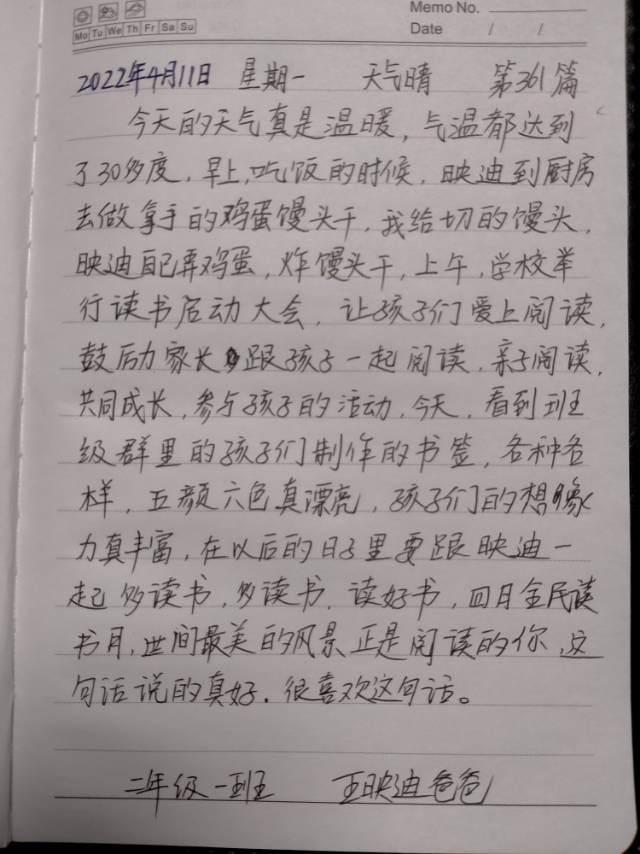 Memo No.
Mo Tu We Th Fr Sa Su
Date / /
2022年4月11日 星期一 天气晴 第361篇
今天的天气真是温暖，气温都达到
了30多度，早上，吃饭的时候，映迪到厨房
去做拿手的鸡蛋馒头干，我给切的馒头，
映迪自己弄鸡蛋，炸馒头干，上午，学校举
行读书启动大会，让孩子们爱上阅读，
鼓励家长跟孩子一起阅读，亲子阅读，
共同成长，参与孩子的活动，今天，看到班
级群里的孩子们制作的书签，各种各
样，五颜六色真漂亮，孩子们的想像
力真丰富，在以后的日子里要跟映迪一
起多读书，多读书，读好书，四月全民读
书月，世间最美的风景正是阅读的你，这
句话说的真好．很喜欢这句话。
二年级一班 王映迪爸爸